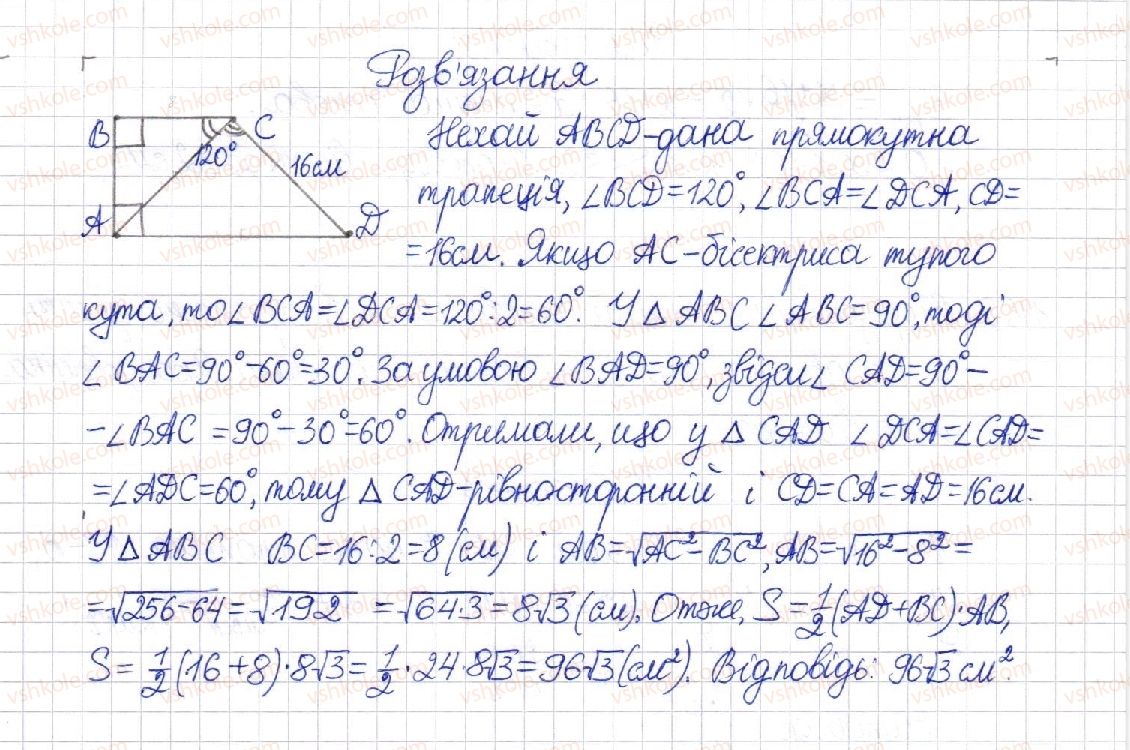 Розв'язання
B C 120° 16см A D
Нехай ABCD-дана прямокутна
трапеція, ∠BCD=120°, ∠BCA=∠DCA, CD=
=16см. Якщо AC-бісектриса тупого
кута, то ∠BCA=∠DCA=120°:2=60°. У △ABC ∠ABC=90°, тоді
∠BAC=90°-60°=30°. За умовою ∠BAD=90°, звідси ∠CAD=90°-
-∠BAC=90°-30°=60°. Отримали, що у △CAD ∠DCA=∠CAD=
=∠ADC=60°, тому △CAD-рівносторонній і CD=CA=AD=16см.
У △ABC BC=16:2=8(см) і AB=√(AC²-BC²), AB=√(16²-8²)=
=√(256-64)=√192=√(64·3)=8√3(см). Отже, S=1/2(AD+BC)·AB,
S=1/2(16+8)·8√3=1/2·24·8√3=96√3(см²). Відповідь: 96√3см².